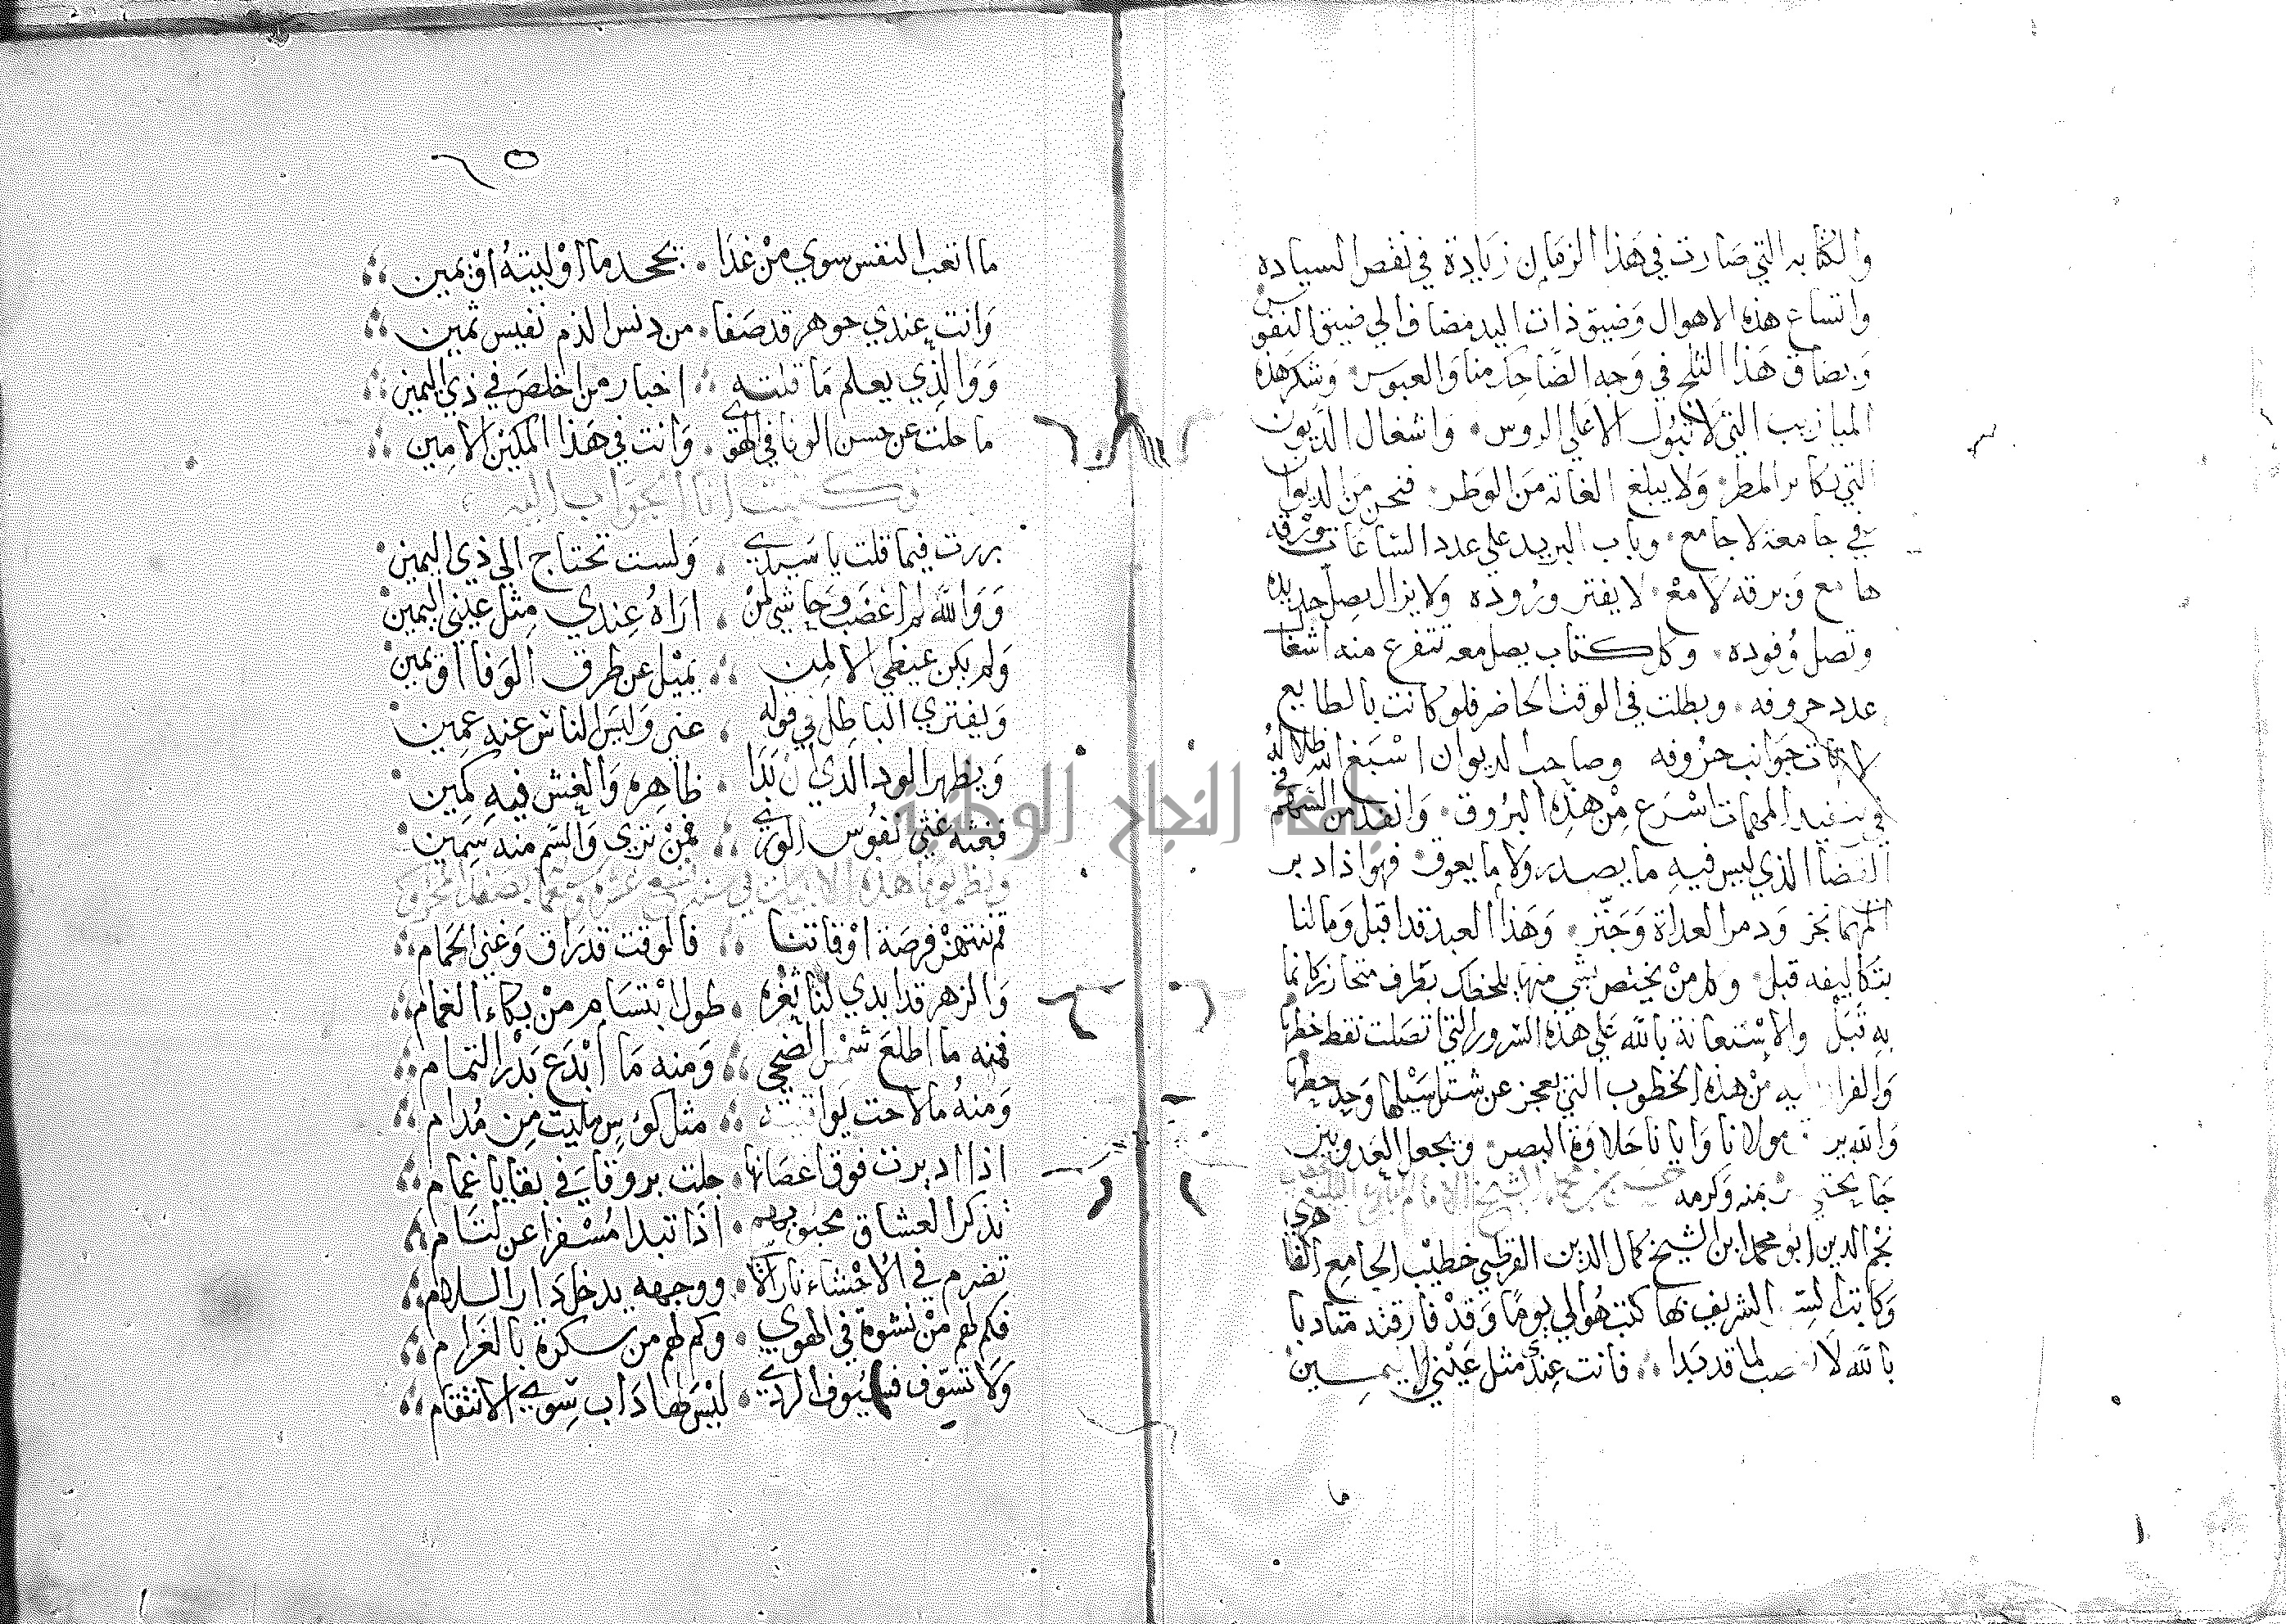 والكتابه التي صارت في هذا الزمان زيادة في نقص السياده
واتساع هذه الاهوال وضيق ذات اليد مضاف الي ضيق النفوس
وبصاق هذا الثلج في وجه الضاحك منا والعبوس وشكر هذه
الميازيب التي لا تبول الا علي الروس واشغال الديون
التي تكاثر المطر ولا يبلغ الغاية من الوطر فنحن من الديوان
في جامعة لا جامع وباب البريد علي عدد الساعات
هامع وبرقه لامع لا يفتر وروده ولا يزال يصل
وتصل وفوده وكل كتاب يصل معه تتفرع منه اشغال
عدد حروفه وبطلت في الوقت الحاضر فلو كانت بالطابع
لا جوانب حروفه وصاحب الديوان اسبغ الله ظلاله
في تنفيد المهمات اسرع من هذه البروق وانفد من السهم في
الفضا الذي ليس فيه ما يصد ولا ما يعوق فهو اذا دبر
المهما نجز ودمر العداة وهذا العبد قد اقبل وما لنا
بتكاليفه قبل ولم من يختص بشي منها يلحظك بطرف متحازر كانما
به قبل والاستعانة بالله علي هذه الشرور التي اتصلت نقط
من هذه الخطوب التي يعجز عن سيلها
والله مولانا وايانا حلاوة البصر ويجعل العدو بين
بمنه وكرمه الشيخ الامام
نجم الدين ابو محمد ابن الشيخ كمال الدين القرطبي خطيب الجامع
وكاتب الشريف بها كتب هو الي يوما وقد فارقته متاديا
بالله لا لما قد بدا فانت عندي مثل عيني اليمين
جامعة النجاح الوطنية
٦٥
ما اتعب النفس سوي من غدا يجحد ما اوليته او يمين
وانت عندي جوهر قد صفا من دنس الذم نفيس ثمين
ووالذي يعلم ما قلته اخبار من اخلص في ذي اليمين
ما حلت عن حسن الوفا في الهوي وانت في هذا المكين الامين
وكتبت انا الجواب اليه
بررت فيما قلت يا سيدي ولست تحتاج الي ذي اليمين
ووالله لم اغضب وحاشي لمن اراه عندي مثل عيني اليمين
ولم يكن غيظي الا لمن يميل عن طرق الوفا او يمين
ويفتري الباطل في قوله عني وليس الناس عنه عمين
ويظهر الود الذي ان بدا ظاهره والغش فيه كمين
فغثه غثي نفوس الوري فمن تري والسم منه سمين
قم ننتهز فرصة اوقاتنا فالوقت قد راق وغني الحمام
والزهر قد ابدي لنا ثغره طول ابتسام من بكاء الغمام
فمنه ما اطلع شمس الضحي ومنه ما ابدع بدر التمام
ومنه ما لاحت مثل كوس مليت من مدام
اذا ادبرت فوق اغصانها جلت بروقا في بقايا غمام
تذكر العشاق محبوبهم اذا تبدا مسفرا عن لثام
تضرم في الاحشاء نار ووجهه يدخل دار السلام
فكم لهم من نشوة في الهوي وكم لهم من سكرة بالغرام
ولا تسوف فسيوف الردي ليس لها داب سوي الانتقام